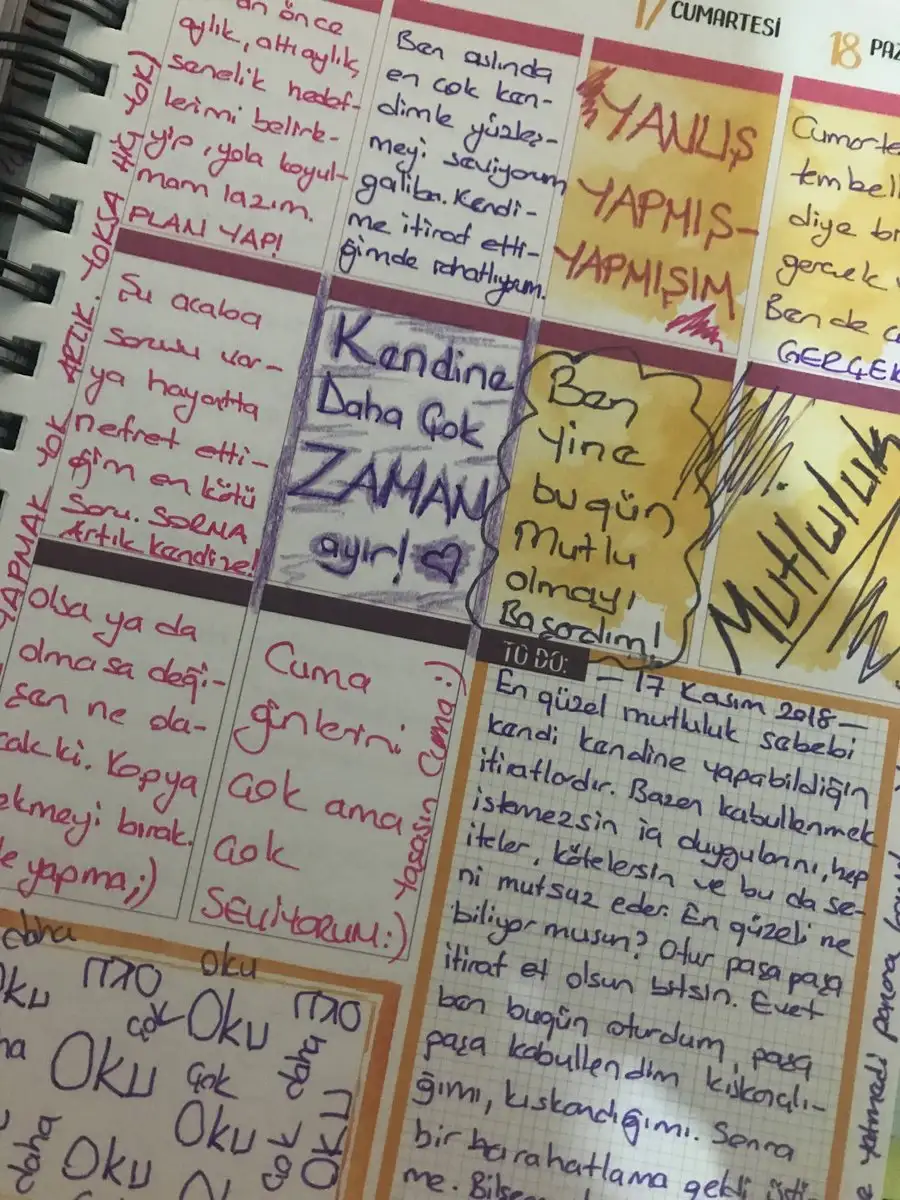 17 CUMARTESİ
18 PAZ
an önce
aylık, altı aylık,
senelik hedef-
lerimi belirle-
yip, yola koyul-
mam lazım.
PLAN YAP!
Ben aslında
en çok ken-
dimle yüzleş-
meyi seviyorum
galiba. Kendi-
me itiraf etti-
ğimde rahatlıyorum.
YANLIŞ
YAPMIŞ-
YAPMIŞIM
Cumarte
tembell
diye bi
gerçek
Bende
GERÇEK
Şu acaba
sorusu var-
ya hayatta
nefret etti-
ğim en kötü
Soru. SORMA
Artık kendine!
Kendine
Daha Çok
ZAMAN
ayır!
Ben
yine
bugün
Mutlu
olmayı
Başardım!
Mutluluk
YAPMAK YOK ARTIK. YOKSA HİÇ YOK)
olsa ya da
olmasa deği-
şen ne ola-
cak ki. Kopya
ekmeyi bırak.
yapma;)
Cuma
günlerini
çok ama
çok
SEVİYORUM:)
Yaşasın Cuma :)
TO DO:
- 17 Kasım 2018 -
En güzel mutluluk sebebi
kendi kendine yapabildiğin
itiraflardır. Bazen kabullenmek
istemezsin iç duygularını, hep
iteler, kötelersin ve bu da se-
ni mutsuz eder. En güzeli ne
biliyor musun? Otur paşa paşa
itiraf et olsun bitsin. Evet
ben bugün oturdum, paşa
paşa kabullendim kıskançlı-
ğımı, kıskandığımı. Sonra
bir barahatlama geldi üsti
me. Bilse
daha
Oku
OKU
Oku
çok
Oku
OKU
Oku
çok
daha
Oku
daha
Oku
çok
OKU
yatmadı